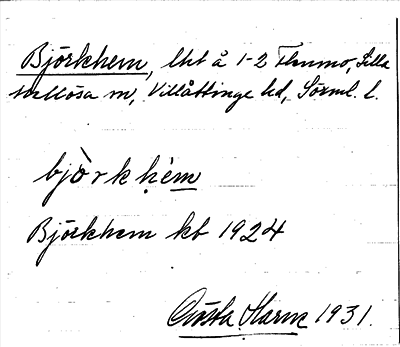 Björkhem, lht å 1-2 Flenmo, Lilla
Mellösa sn, Villåttinge hd, Sörml. l.
björkhem
Björkhem kb 1924
Gösta Harne 1931.